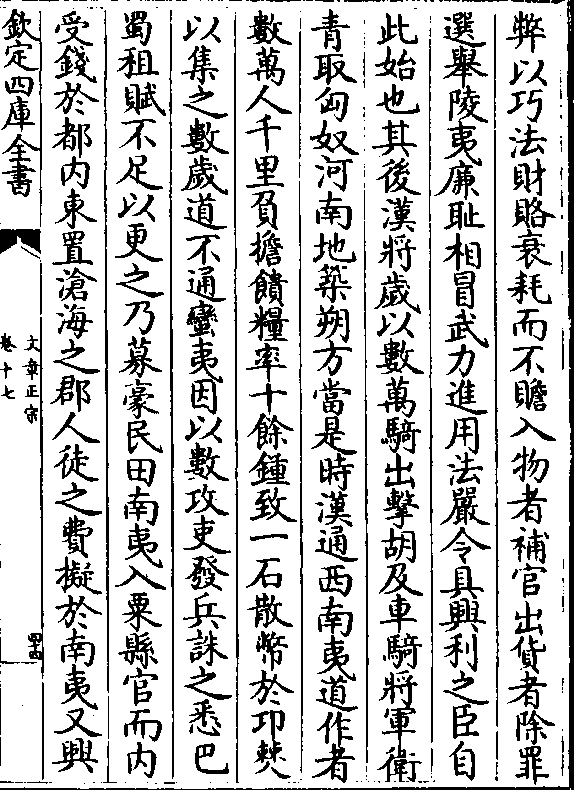 弊以巧法財賂衰耗而不贍入物者補官出貨者除罪
選舉陵夷廉耻相冒武力進用法嚴令具興利之臣自
此始也其後漢將歲以數萬騎出擊胡及車騎將軍衛
青取匈奴河南地築朔方當是時漢通西南夷道作者
數萬人千里負擔饋糧率十餘鍾致一石散幣於卭僰
以集之數歲道不通蠻夷因以數攻吏發兵誅之悉巴
蜀租賦不足以更之乃募豪民田南夷入粟縣官而内
受錢於都内東置滄海之郡人徒之費擬於南夷又興
欽定四庫全書
文章正宗
卷十七
四十四